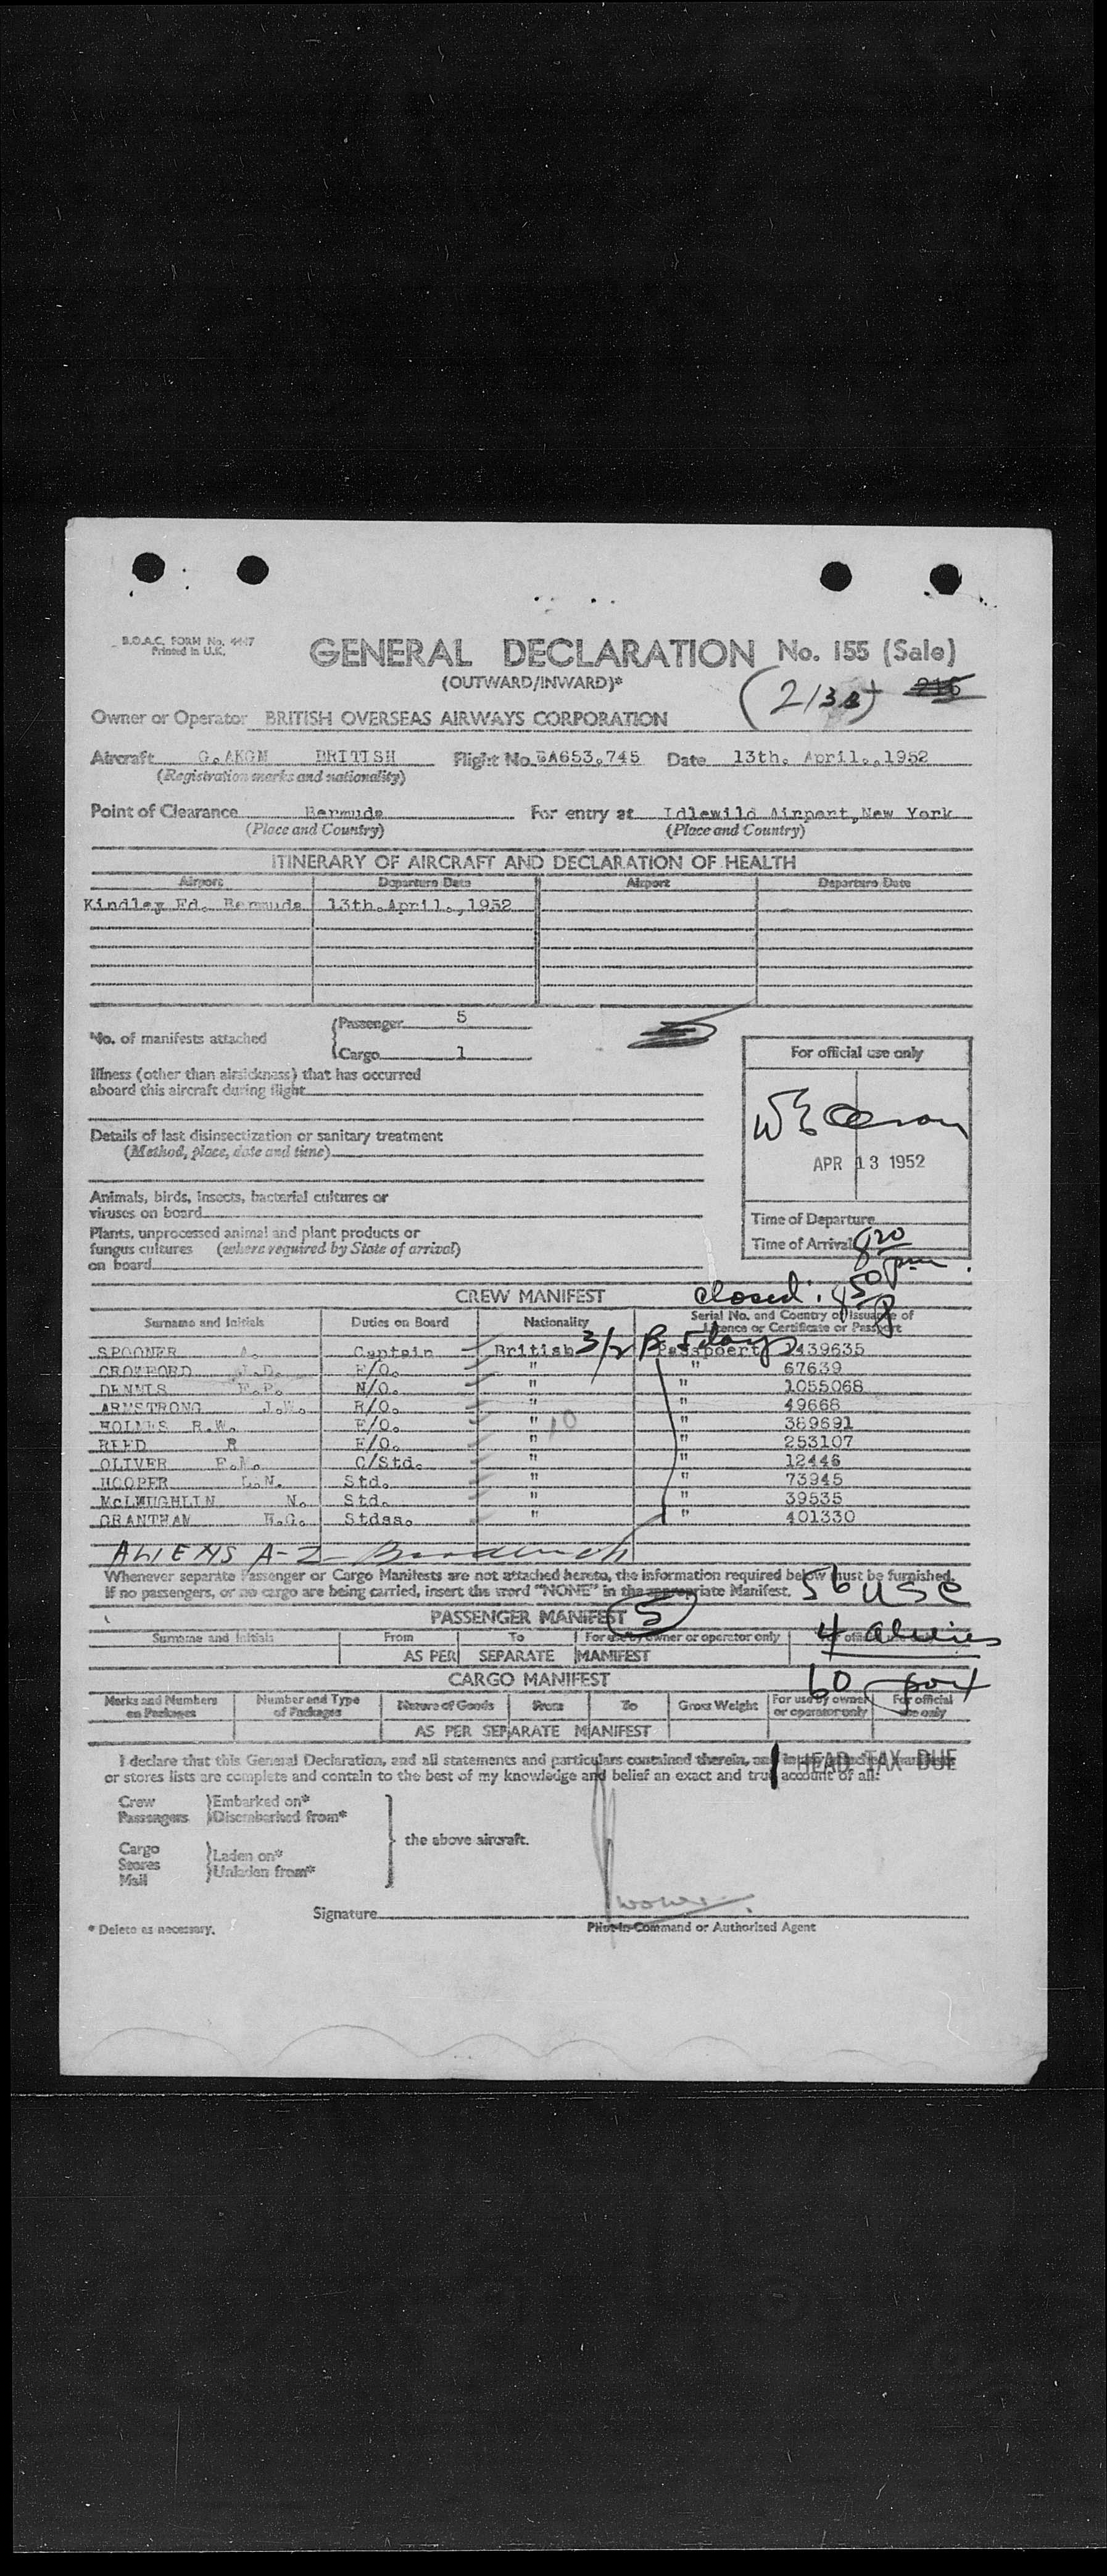 B.O.A.C. FORM No. 4447
Printed in U.K.
GENERAL DECLARATION No. 155 (Sale)
(OUTWARD/INWARD)*
216
Owner or Operator BRITISH OVERSEAS AIRWAYS CORPORATION
Aircraft G.AKGM BRITISH Flight No. BA653.745 Date 13th. April.,1952
(Registration marks and nationality)
Point of Clearance Bermuda For entry at Idlewild Airport,New York
(Place and Country) (Place and Country)
ITINERARY OF AIRCRAFT AND DECLARATION OF HEALTH
Airport Departure Date Airport Departure Date
Kindley Fd. Bermuda 13th.April.,1952
No. of manifests attached
Passenger 5
Cargo 1
For official use only
Illness (other than airsickness) that has occurred
aboard this aircraft during flight
Details of last disinsectization or sanitary treatment
(Method, place, date and time)
APR 13 1952
Animals, birds, insects, bacterial cultures or
viruses on board
Time of Departure
Plants, unprocessed animal and plant products or
fungus cultures (where required by State of arrival)
on board
Time of Arrival 820 pm.
closed: 850 P
CREW MANIFEST
Surname and Initials Duties on Board Nationality Serial No. and Country of Issuance of
Licence or Certificate or Passport
3/2 B 5 days
SPOONER A. Captain British Passpoert 439635
CROWFORD J.D. F/O. " " 67639
DENNIS F.P. N/O. " " 1055068
ARMSTRONG J.W. R/O. " " 49668
HOLMES R.W. E/O. " 10 " 389691
REED R E/O. " " 253107
OLIVER F.M. C/Std. " " 12446
HOOPER L.N. Std. " " 73945
McLMUGHLIN N. Std. " " 39535
GRANTHAM H.G. Stdss. " " 401330
ALIENS A-2
Whenever separate Passenger or Cargo Manifests are not attached hereto, the information required below must be furnished.
If no passengers, or no cargo are being carried, insert the word "NONE" in the appropriate Manifest.
56 USC
PASSENGER MANIFEST 5
Surname and Initials From To For use by owner or operator only For official
4 aliens
AS PER SEPARATE MANIFEST
CARGO MANIFEST
60
Marks and Numbers
on Packages Number and Type
of Packages Nature of Goods From To Gross Weight For use by owner
or operator only For official
use only
AS PER SEPARATE MANIFEST
I declare that this General Declaration, and all statements and particulars contained therein, and in any
or stores lists are complete and contain to the best of my knowledge and belief an exact and true account of all:
HEAD TAX DUE
Crew Embarked on*
Passengers Disembarked from*
the above aircraft.
Cargo
Stores
Mail
Laden on*
Unladen from*
Signature
* Delete as necessary.
Pilot-in-Command or Authorised Agent